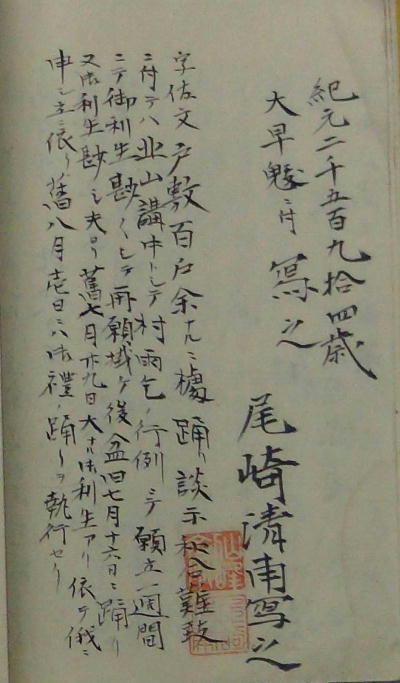 紀元二千五百九拾四歳
大早魃ニ付 寫之
尾崎清南寫之
字佐文戸數百戸余ナルニ 踊リ談示 難致
ニ付テハ 山講中トシテ村雨乞ノ行例ニテ願立一週間
ニテ御利生尠クシテ再願域ケ後盆旧七月十六日ニ踊リ
又御利生尠シ夫ヨリ舊七月廿九日大ナル御利生アリ依テ俄ニ
申シ立ニ依リ舊八月壱日ニハ御禮踊リヲ執行セリ